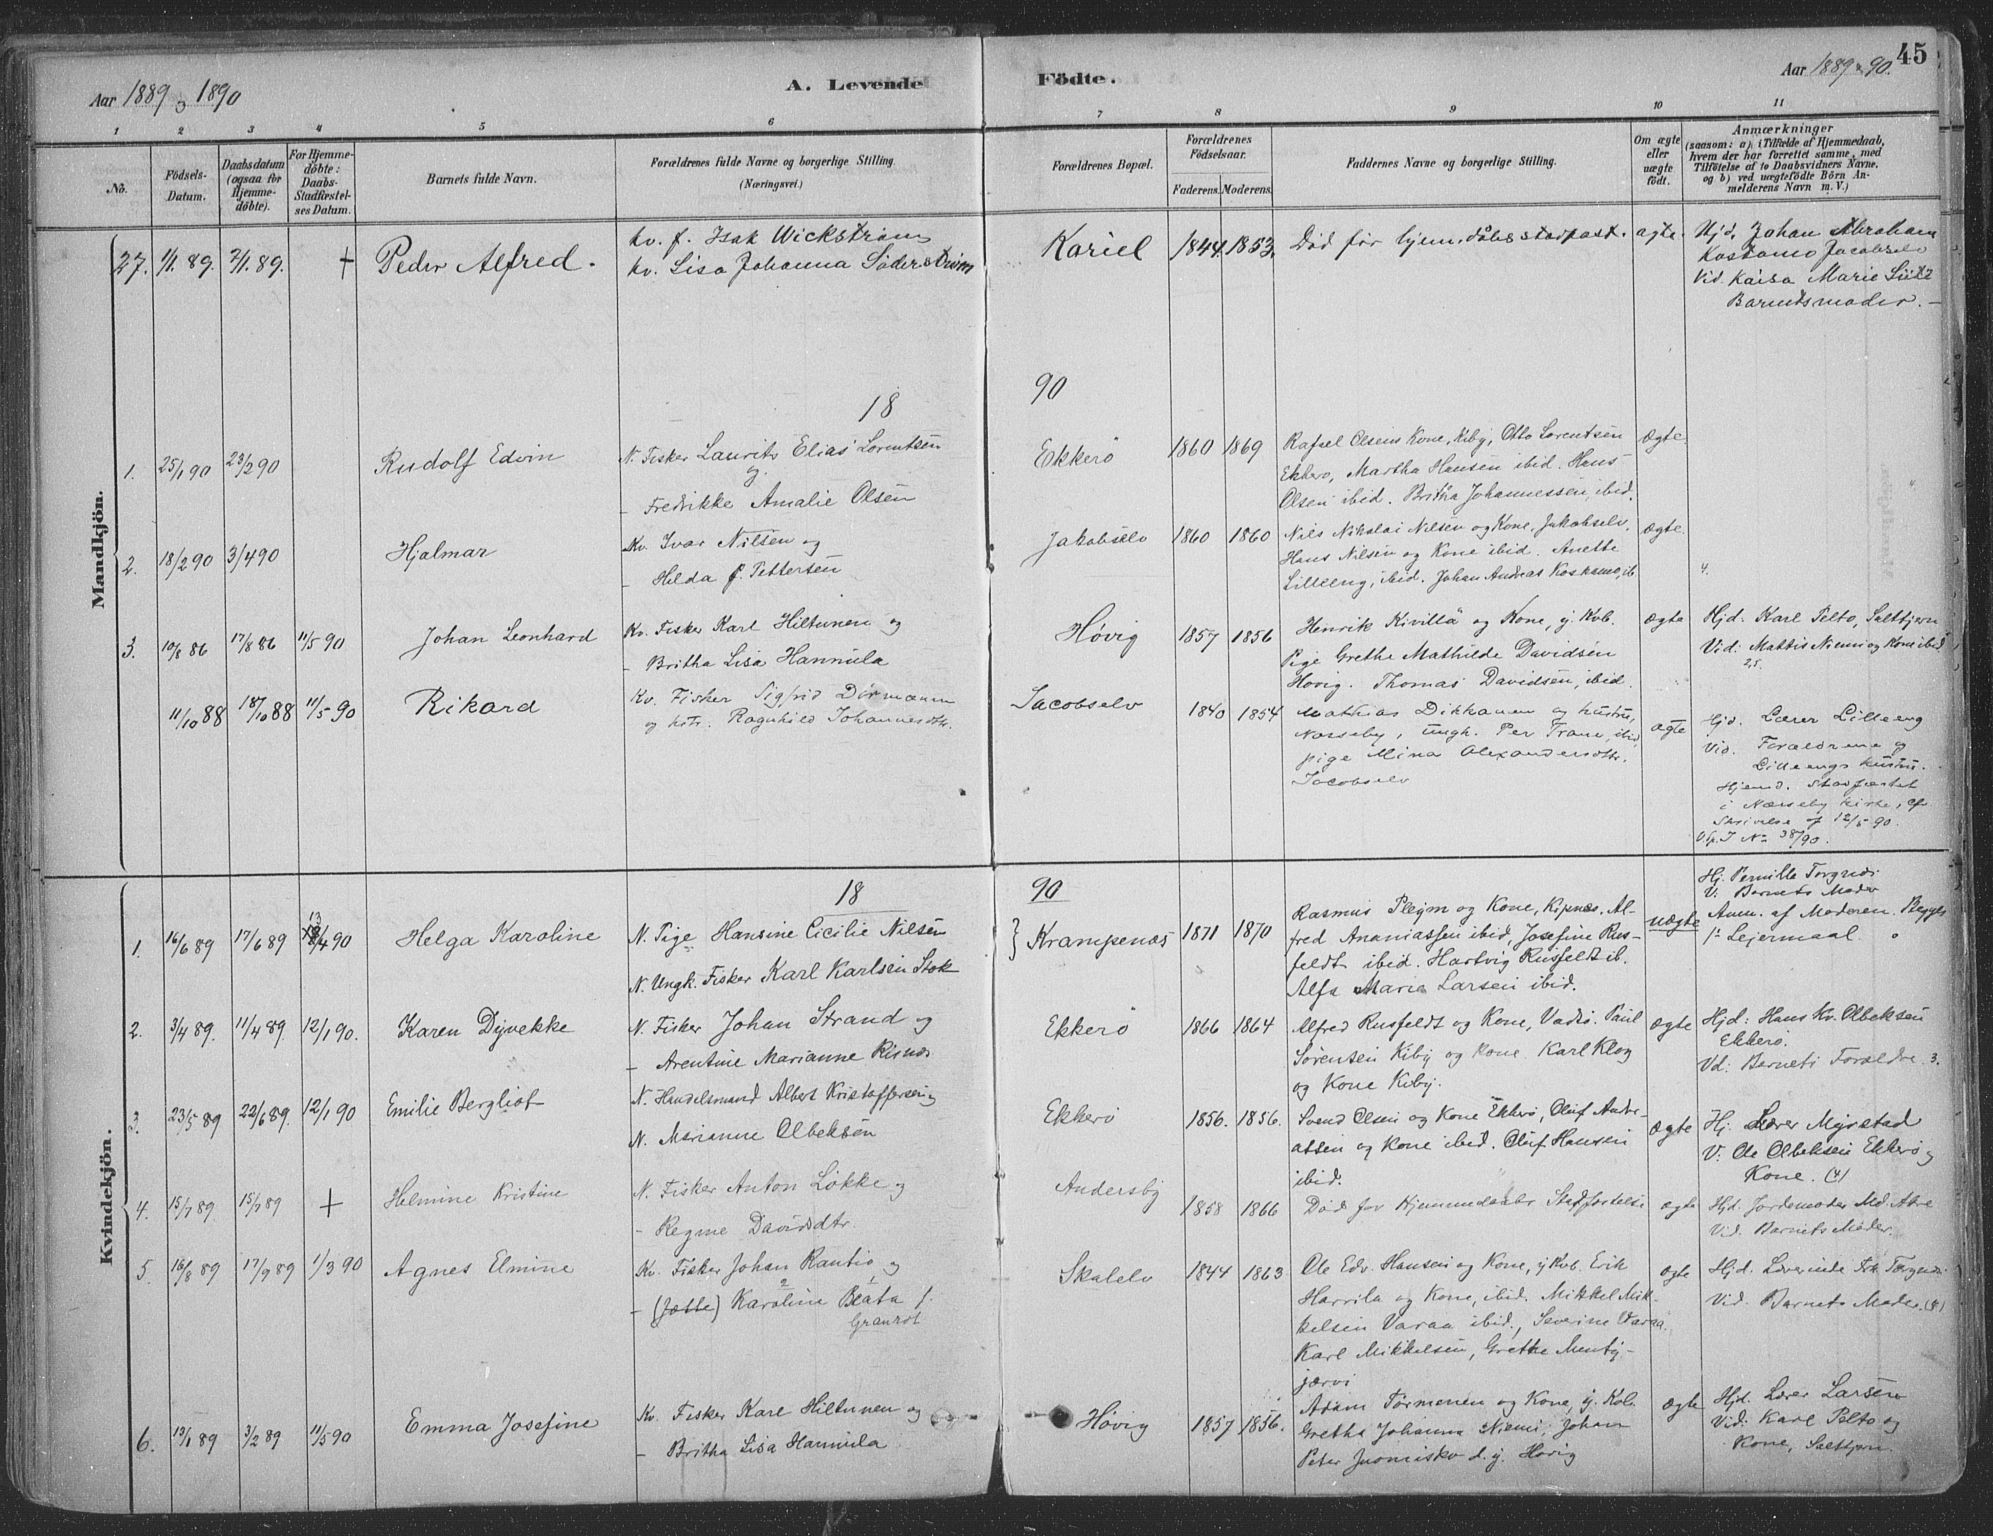 45
Aar 1889 og 1890
A. Levende Födte.
Aar 1889 & 90.
1 2 3 4 5 6 7 8 9 10 11
No.
Födsels-Datum.
Daabsdatum (ogsaa for Hjemmedöbte).
For Hjemmedöbte: Daabs-Stadfæstelses Datum.
Barnets fulde Navn.
Forældrenes fulde Navne og borgerlige Stilling. (Næringsvei.)
Forældrenes Bopæl.
Forældrenes Födselsaar.
Faderens. Moderens.
Faddernes Navne og borgerlige Stilling.
Om ægte eller uægte födt.
Anmærkninger
(saasom: a) i Tilfælde af Hjemmedaab, hvem der har forrettet samme, med Tilföielse af to Daabsvidners Navne, og b) ved uægtefödte Börn Anmelderens Navn m. V.)
Mandkjön.
27. 7/1. 89. 7/1. 89. + Peder Alfred.
Kv. f. Isak Wickström
kv. Lisa Johanna Söderström
Kariel 1844 1853.
Död før hjem.dåbsstadfæst. ægte.
Hjd. Johan Abraham
Kostamo Jacobselv
Vid. Kaisa Marie
Barnetsmoder. –
18 90
1. 25/1 90 23/2 90 Rudolf Edvin
N. Fisker Laurits Elias Lorentsen
og
– Fredrikke Amalie Olsen
Ekkerö 1860 1869
Rafael Olsens Kone, Kiby, Otto Lorentsen
Ekkerö, Martha Hansen ibid. Hans
Olsen ibid. Britha Johannessen, ibid.
Ægte
2. 18/2 90 3/4 90 Hjalmar
Kv. Ivar Nilsen og
– Helda f. Pettersen
Jakobselv 1860 1860
Nils Nikolai Nilsen og Kone, Jakobselv.
Hans Nilsen og Kone ibid. Anette
Lilleeng, ibid. Johan Andreas Koskamo, ib
Ægte.
4.
3. 10/8 86 17/8 86 11/5 90 Johan Leonhard
Kv. Fisker Karl Hiltunen og
– Britha Lisa Hannula
Høvig 1857 1856
Henrik Kivillä og Kone, y. Kvb.
Pige Grethe Mathilde Davidsen
Høvig. Thomas Davidsen, ibid.
Ægte
Hjd. Karl Pelto, Saltbjern
Vid: Mattis Niemi og Kone ibid
25.
11/10 88 18/10 88 11/5 90 Rikard
Kv. Fisker Sigfrid Dörmænen
og hstr. Ragnhild Johannesdtr.
Jacobselv 1840 1854
Mathias Dikkanen og hustru,
Næsseby, ungk. Per Trane, ibid,
pige Mina Alexandersdtr.
Jacobselv
ægte
Hjd. Lærer Lilleeng
Vid. Forældrene og
Lilleengs hustru.
Hjemd. stadfæstet
i Næsseby kirke, cfr
Skrivelse af 12/5 90.
38/90.
Kvindekjön.
18 90
1. 16/6 89 17/6 89 13/4 90 Helga Karoline
N. Pige Hansine Cicilie Nilsen
N. Ungk. Fisker Karl Karlsen Stok
Krampenæs 1871 1870
Rasmus Pleym og Kone, Kipnæs. Al-
fred Ananiassen ibid, Josefine Rus-
feldt ibid. Hartvig Rusfeldt ib.
Alfa Marie Larsen ibid.
uægte
Hj. Pernille Torgnæs
V: Barnets Moder
Anm. af Moderen. Begges
1ste Leiermaal.
2. 3/4 89. 11/4 89. 12/1 90. Karen Dyvekke
N. Fisker Johan Strand og
– Arentine Marianne Risnæs
Ekkerö 1866 1864
Alfred Rusfeldt og Kone, Vadsö. Paul
Sørensen Kiby og kone. Karl Klog
og Kone Kiby.
ægte
Hjd: Hans Kr. Olbeksen
Ekkerö.
Vd: Barnets Forældre. 3.
3. 23/5 89 22/6 89. 12/1 90 Emilie Bergliot
N. Handelsmand Albert Kristoffersen og
N. Marianne Olbeksen
Ekkerö 1856. 1856.
Svend Olsen og Kone Ekkerö, Oluf Andre-
assen og Kone ibid. Oluf Hansen
ibid.
Ægte
Hj. Lærer Myrstad
V: Ole Olbeksen Ekkerö og
Kone. (4)
4. 15/7 89. 15/7 89 + Helmine Kristine
N. Fisker Anton Løkke og
– Regine Davidsdtr.
Andersby 1858 1866
Død før Hjemmedaabs Stadfæstelse
ægte
Hjd. Jordemoder
Vid. Barnets Moder.
5. 16/8 89 17/9 89 1/3 90 Agnes Elmine
Kv. Fisker Johan Rantio og
– (Jætte) Karoline Beata f.
Granrot
Skalelv 1844 1863
Ole Edv. Hansen og Kone, y Kvb. Erik
Harrila og Kone, ibid. Mikkel Mik-
kelsen Varaa ibid., Severine Varaa.
Karl Mikkelsen, Grethe Menty-
jærvi
ægte
Hjd. Lærerinde Frk. Torgnæs
Vid. Barnets Moder. (5)
6. 13/1 89 3/2 89 11/5 90 Emma Josefine
Kv. Fisker Karl Hiltunen og
– Britha Lisa Hannula
Høvig 1857 1856.
Adam Tørmenen og Kone, y. Kvb.
Gretha Johanna Niemi, Johan
Peter Juoniskov d. y. Høvig
ægte
Hjd. Lærer Larsen
Vid: Karl Pelto og
Kone, Saltbjern.